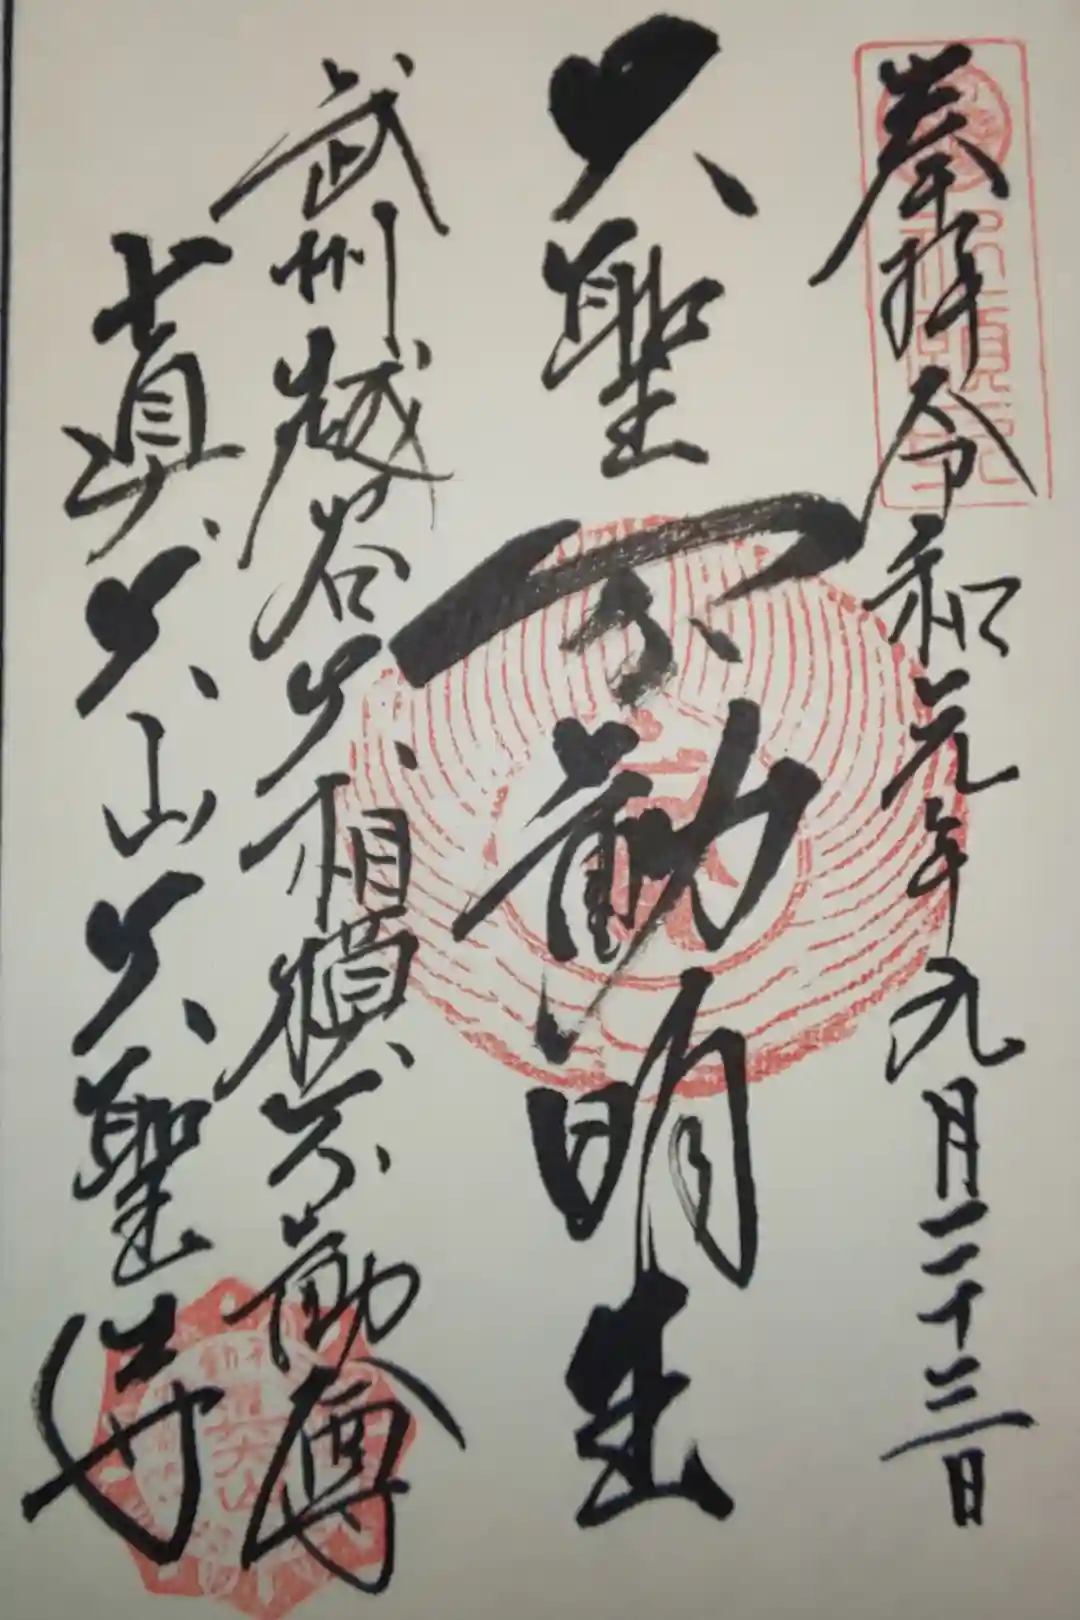 奉拝 令和元年九月二十三日
大聖不動明王
武州越谷大相模不動尊
眞大山大聖寺